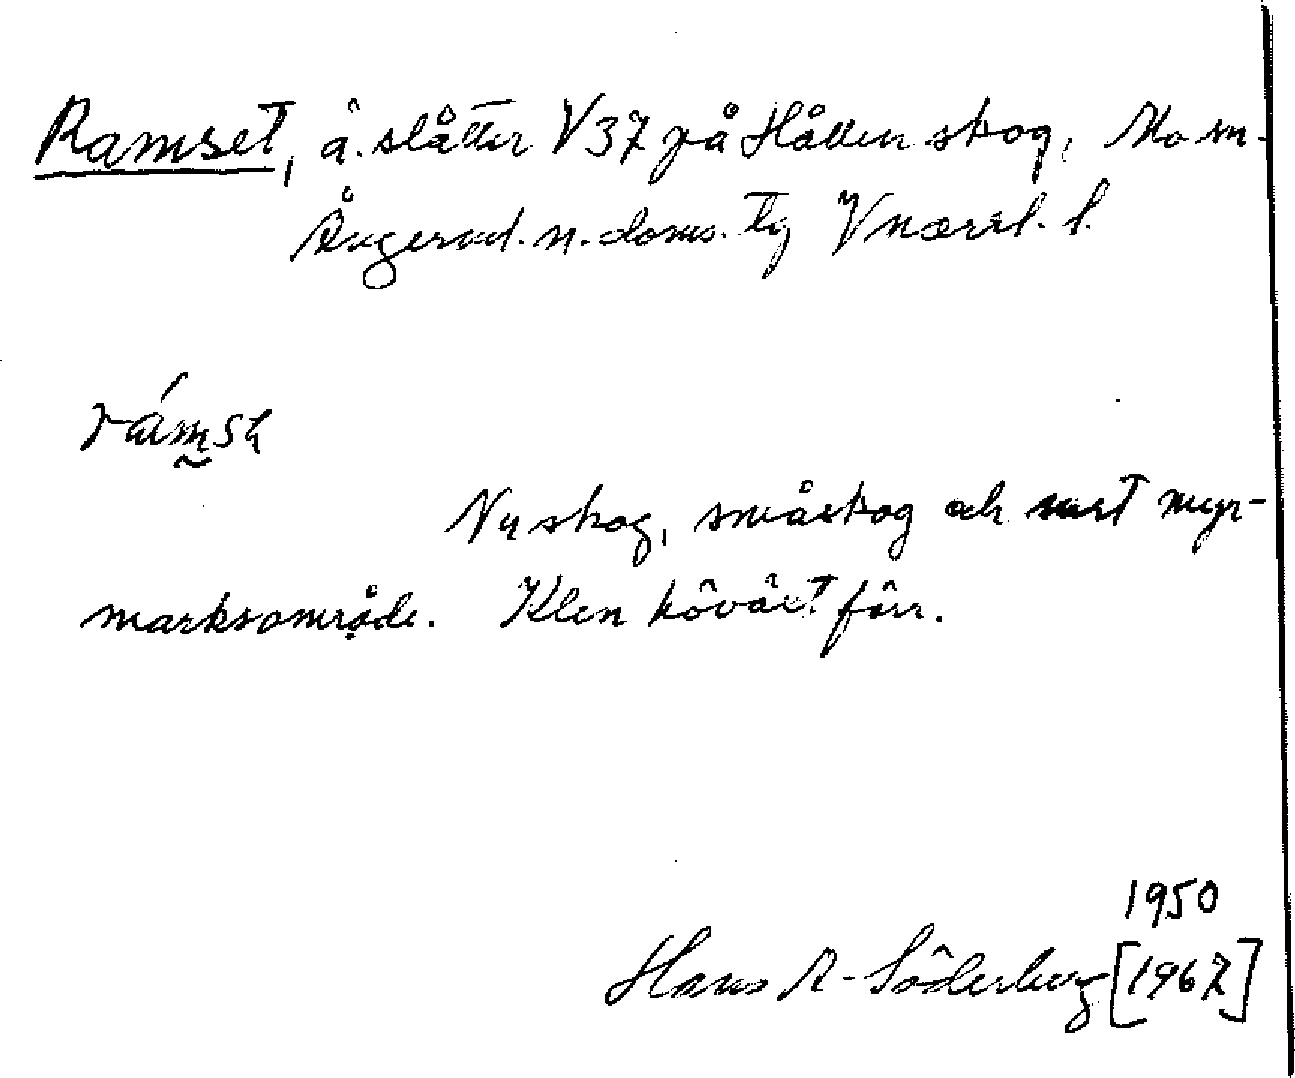 Ramset, ä. slåtter V37 på Hållen skog, Mo sn.
Ångerml. n. doms. tg Vnorrl. l.
rámsh
Ny skog, småskog och surt myr-
marksområde. Klen kövåt förr.
1950
Hans A-Söderberg [1967]